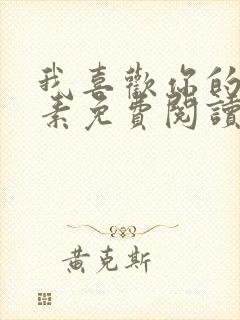 我喜歡你的
素免費閱讀
黄克斯